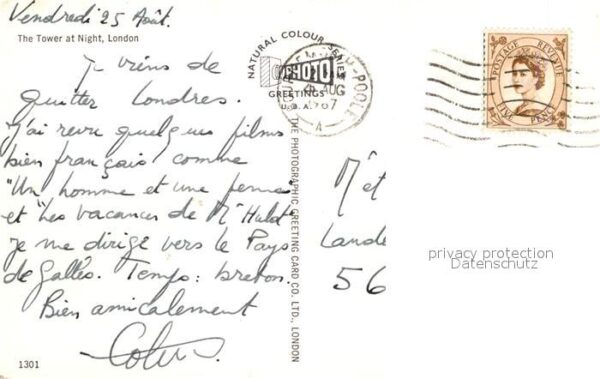 Vendredi 25 Août.
The Tower at Night, London
Je viens de
quitter Londres.
J'ai revu quelques films
bien français comme
"Un homme et une femme"
et "Les vacances de Mr Hulot"
je me dirige vers le Pays
de Galles. Temps : breton.
Bien amicalement
1301
NATURAL COLOUR SERIES
PHOTO
GREETINGS
U.S.A.
THE PHOTOGRAPHIC GREETING CARD CO. LTD., LONDON
POOLE
AUG
1967
A
POSTAGE REVENUE
PENCE
M et
Lande
56
privacy protection
Datenschutz